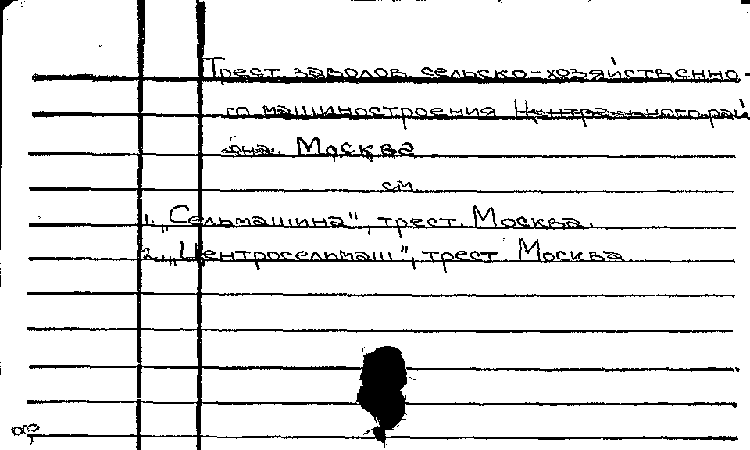 Трест заводов сельско-хозяйственно-
го машиностроения Центрального рай
она. Москва
см.
1. „Сельмашина", трест. Москва.
2. „Центросельмаш", трест Москва